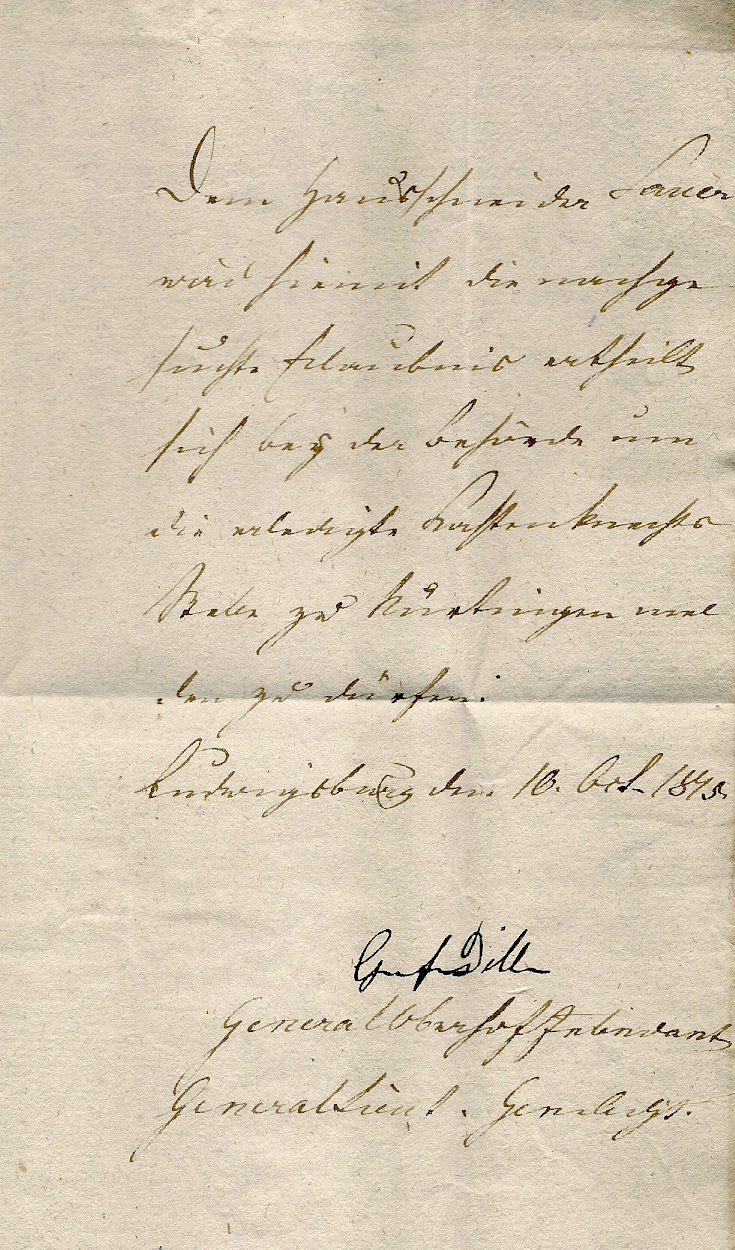 Dem Hausschneider Sauer
wird hiemit die nachge
suchte Erlaubnis ertheilt
sich bey der Behörde um
die erledigte Kastenknechts
Stelle zu Nürtingen mel
den zu dürfen.
Ludwigsburg den 10. Oct. 1815
Graf Dillen
General Oberhof Intendant
General Lieut.